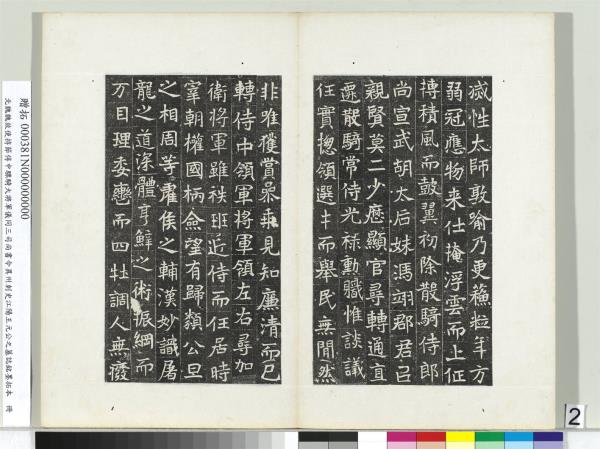 滅性太師敦喻乃更蘓粒年方
弱冠應物来仕掩浮雲而上征
摶積風而鼓翼初除散騎侍郎
尚宣武胡太后妹馮翊郡君以
親賢莫二少歷顯官尋轉通直
遷散騎常侍光祿勳職惟談議
任實揔領選士而舉民無閒然
非唯獲賞參乘見知廉清而已
轉侍中領軍將軍領左右尋加
衛將軍雖秩班近侍而任居時
宰朝權國柄僉望有歸類公旦
之相周等霍侯之輔漢妙識屠
龍之道深體亨鮮之術振綱而
万目理委轡而四牡調人無廢
贈拓 000381N000000000
元魏魏故使持節侍中驃騎大將軍儀同三司尚書令冀州刺史江陽王元公之墓誌銘墨拓本 冊
2